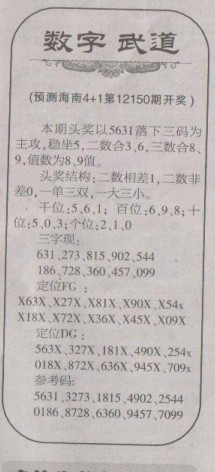 数字 武道
(预测海南4+1第12150期开奖)
本期头奖以5631落下三码为
主攻,稳坐5,二数合3、6,三数合8、
9,值数为8、9值。
头奖结构:二数相差1,二数非
差0,一单三双,一大三小。
千位:5、6、1; 百位:6、9、8;十
位:5、0、3;个位:2、1、0
三字现:
631、273、815、902、544
186、728、360、457、099
定位FG:
X63X、X27X、X81X、X90X、X54x
X18X、X72X、X36X、X45X、X09X
定位DG:
563X、327X、181X、490X、254x
018X、872X、636X、945X、709x
参考码:
5631、3273、1815、4902、2544
0186、8728、6360、9457、7099